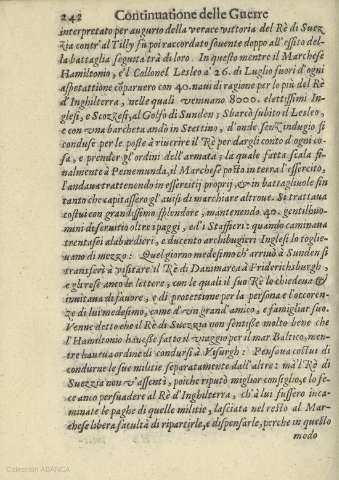 242 Continuatione delle Guerre
interpretato per augurio della verace vittoria del Rè di Suez
zia contr'al Tilly fù poi raccordato souente doppo all'essito del-
la battaglia seguita trà di loro. In questo mentre il Marchese
Hamiltonio, e'l Collonel Lesleo a' 26. di Luglio fuori d'ogni
aspettatione cōparuero con 40. naui di ragione per lo più del Rè
d'Inghilterra, nelle quali veniuano 8000. elettissimi In-
glesi, e Scozzesi, al Golfo di Sunden; Sbarcò subito il Lesleo,
e con vna barcheta andò in Stettino, d'onde senz'indugio si
conduse per le poste à riuerire il Rè per dargli conto d'ogni co-
sa, e prender gl'ordini dell'armata; la quale fatta scala fi-
nalmente à Peinemunda, il Marchese posto in terra l'essercito,
l'andaua trattenendo in essercitij proprij, & in battagliuole sin
tanto che capitassero gl'auisi di marchiare altroue. Si trattaua
costui con grandissimo splendore, mantenendo 40. gentilhuo-
mini di seruitio oltre i paggi, ed'i Staffieri: quando caminaua
trentasei alabardieri, e ducento archibugieri Inglesi lo toglie-
uano di mezzo: Quel giorno medesimo ch'arriuò à Sunden si
transferì à visitare il Rè di Danimarca à Friderichsburgh,
e gli resè anco le lettere, con le quali il suo Rè lo chiedeua
imitaua di fauore, e di protettione per la persona e l'occoren-
ze di lui medesimo, come d'vn grand'amico, e famigliar suo.
Venne detto che il Rè di Suezzia non sentisse molto bene che
l'Hamiltonio hauesse fatto il viaggio per il mar Baltico, men-
tre haueua ordine di condursi à Visurgh: Pensaua costui di
condurne le sue militie separatamente dall'altre: mà'l Rè di
Suezzia non v'assentì, poiche riputò miglior consiglio, e lo fe-
ce anco persuadere al Rè d'Inghilterra, ch'à lui fussero inca-
minate le paghe di quelle militie, lasciata nel resto al Mar-
chese libera facultà di ripartirle, e dispensarle, perche in questo
modo
Colección ABANCA